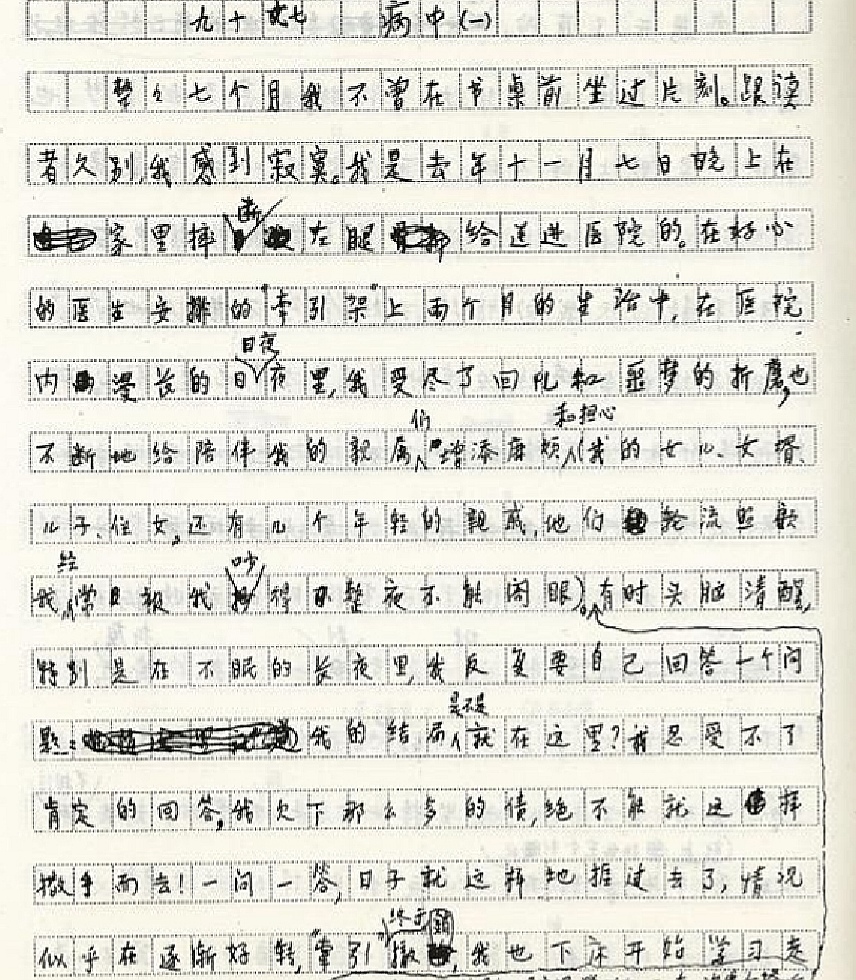 九十七 病中(一)
整整七个月我不曾在书桌前坐过片刻。跟读
者久别,我感到寂寞。我是去年十一月七日晚上在
家里摔断左腿给送进医院的。在好心
的医生安排的“牵引架”上两个月的生活中,在医院
内漫长的日日夜夜里,我受尽了回忆和噩梦的折磨,也
不断地给陪伴我的亲属们增添麻烦和担心(我的女儿、女婿、
儿子、侄女,还有几个年轻的亲戚,他们轮流照顾
我,经常被我吵得整夜不能闭眼)。有时头脑清醒,
特别是在不眠的长夜里,我反复要自己回答一个问
题:我的结局是不是就在这里?我忍受不了
肯定的回答,我欠下那么多的债,绝不能就这样
撒手而去!一问一答,日子就这样地推过去了,情况
似乎在逐渐好转,“牵引”终于撤,我也下床开始学习走